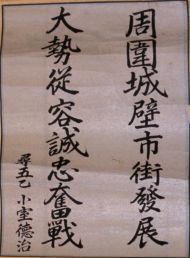 周圍城壁市街發展
大勢從容誠忠奮戰
尋五乙 小室德治